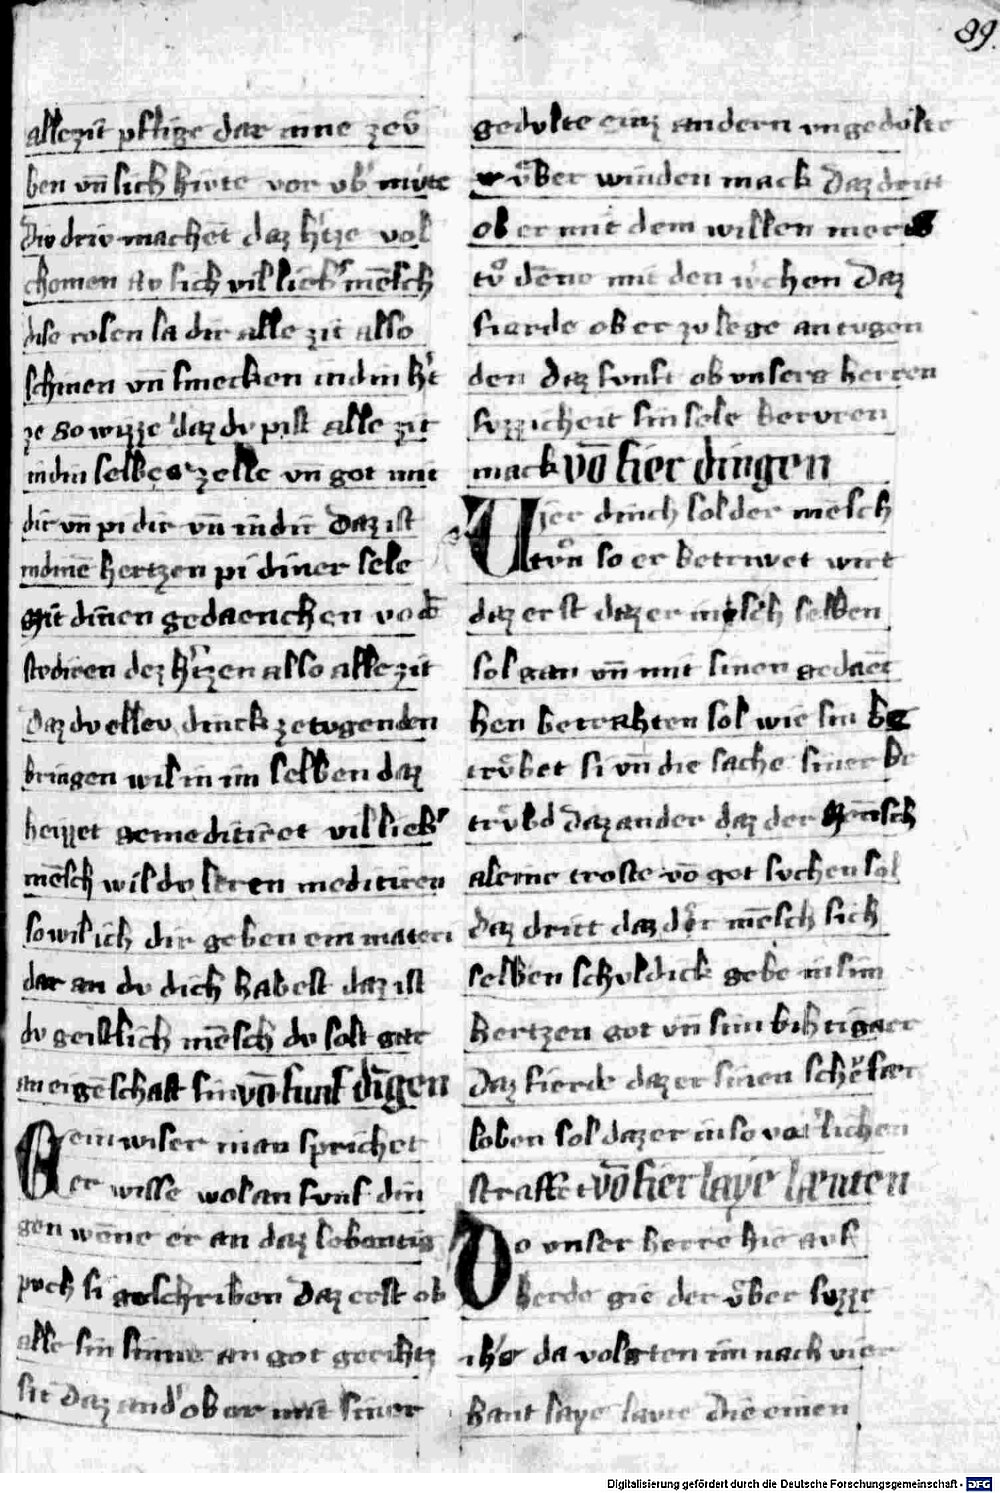 89.
allezit pflige dar inne zeu̍
ben vn̄ sich hivte vor vb' mvte
Div driv machet daz h'tze vol
chomen Nv sich vil lieb' mēsch
dise rosen la dir alle zit also
schinen vn̄ smecken in din h't
ze So wizze daz dv pist alle zit
in din selbes zelle vn̄ got mit
dir vn̄ pi dir vn̄ in dir Daz ist
in dinē hertzen pi diner sele
mit dinen gedaenchen vo d̄
stvdiren dez h'tzen also alle zit
Daz dv ellev dinck ze tvgenden
bringen wil in im selben daz
heizzet gemeditiret vil lieb'
mēsch wil dv leren meditiren
so wil ich dir geben ein materi
dar an dv dich habest daz ist
dv geistlich mēsch dv solt gar
an eigēschaft sin vō funf dīgen
ein wiser man sprichet
er wisse wol an fvnf din
gen wēne er an daz lebentig
pvch si geschriben Daz erst ob
alle sin sinne an got gerihtz
sit Daz and' ob er mit siner
gedvlte einz andern vngedvlte
vͦber winden mack Daz dritt
ob er mit dem willen mer
tvͦ dēne mit den w'chen Daz
fierde ob er zv lege an tvgen
den Daz fvnft ob vnsers herren
svzzicheit sin sele bervren
mack vō fier dingen
Vier dinch sol der mēsch
tvͦn so er betrvvet wirt
daz erst daz er in sich selben
sol gan vn̄ mit sinen gedaēc
hen betrahten sol wie sin be
trvͦbet si vn̄ die sache siner be
trvͦbd Daz ander daz der mensch
aleine troste vō got svchen sol
Daz dritt daz der mēsch sich
selben schvldick gebe in sim
hertzen got vn̄ sim bihtigaer
Daz fierde daz er sinen schefaer
loben sol daz er in so vat'lichen
straffet vō fier laye laeuten
Do vnser herre hie avf
erde gie der vͦber svzze
ih's da volgten im nach vier
hant laye lavte Die einen